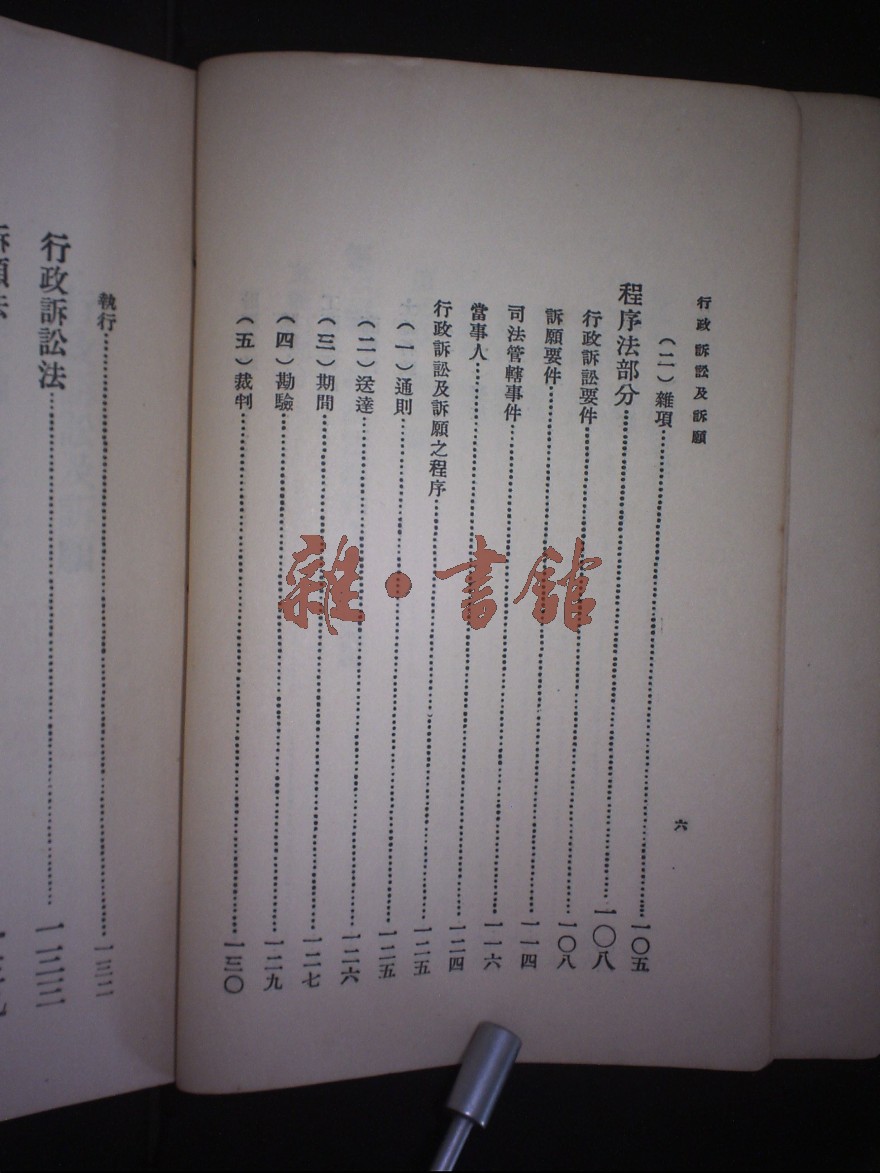 行政訴訟及訴願
六
(二)雜項……一〇五
程序法部分……一〇八
行政訴訟要件……一〇八
訴願要件……一一四
司法管轄事件……一一六
當事人……一二四
行政訴訟及訴願之程序……一二五
(一)通則……一二五
(二)送達……一二六
(三)期間……一二七
(四)勘驗……一二九
(五)裁判……一三〇
執行……一三二
行政訴訟法……一三三
雜·書館